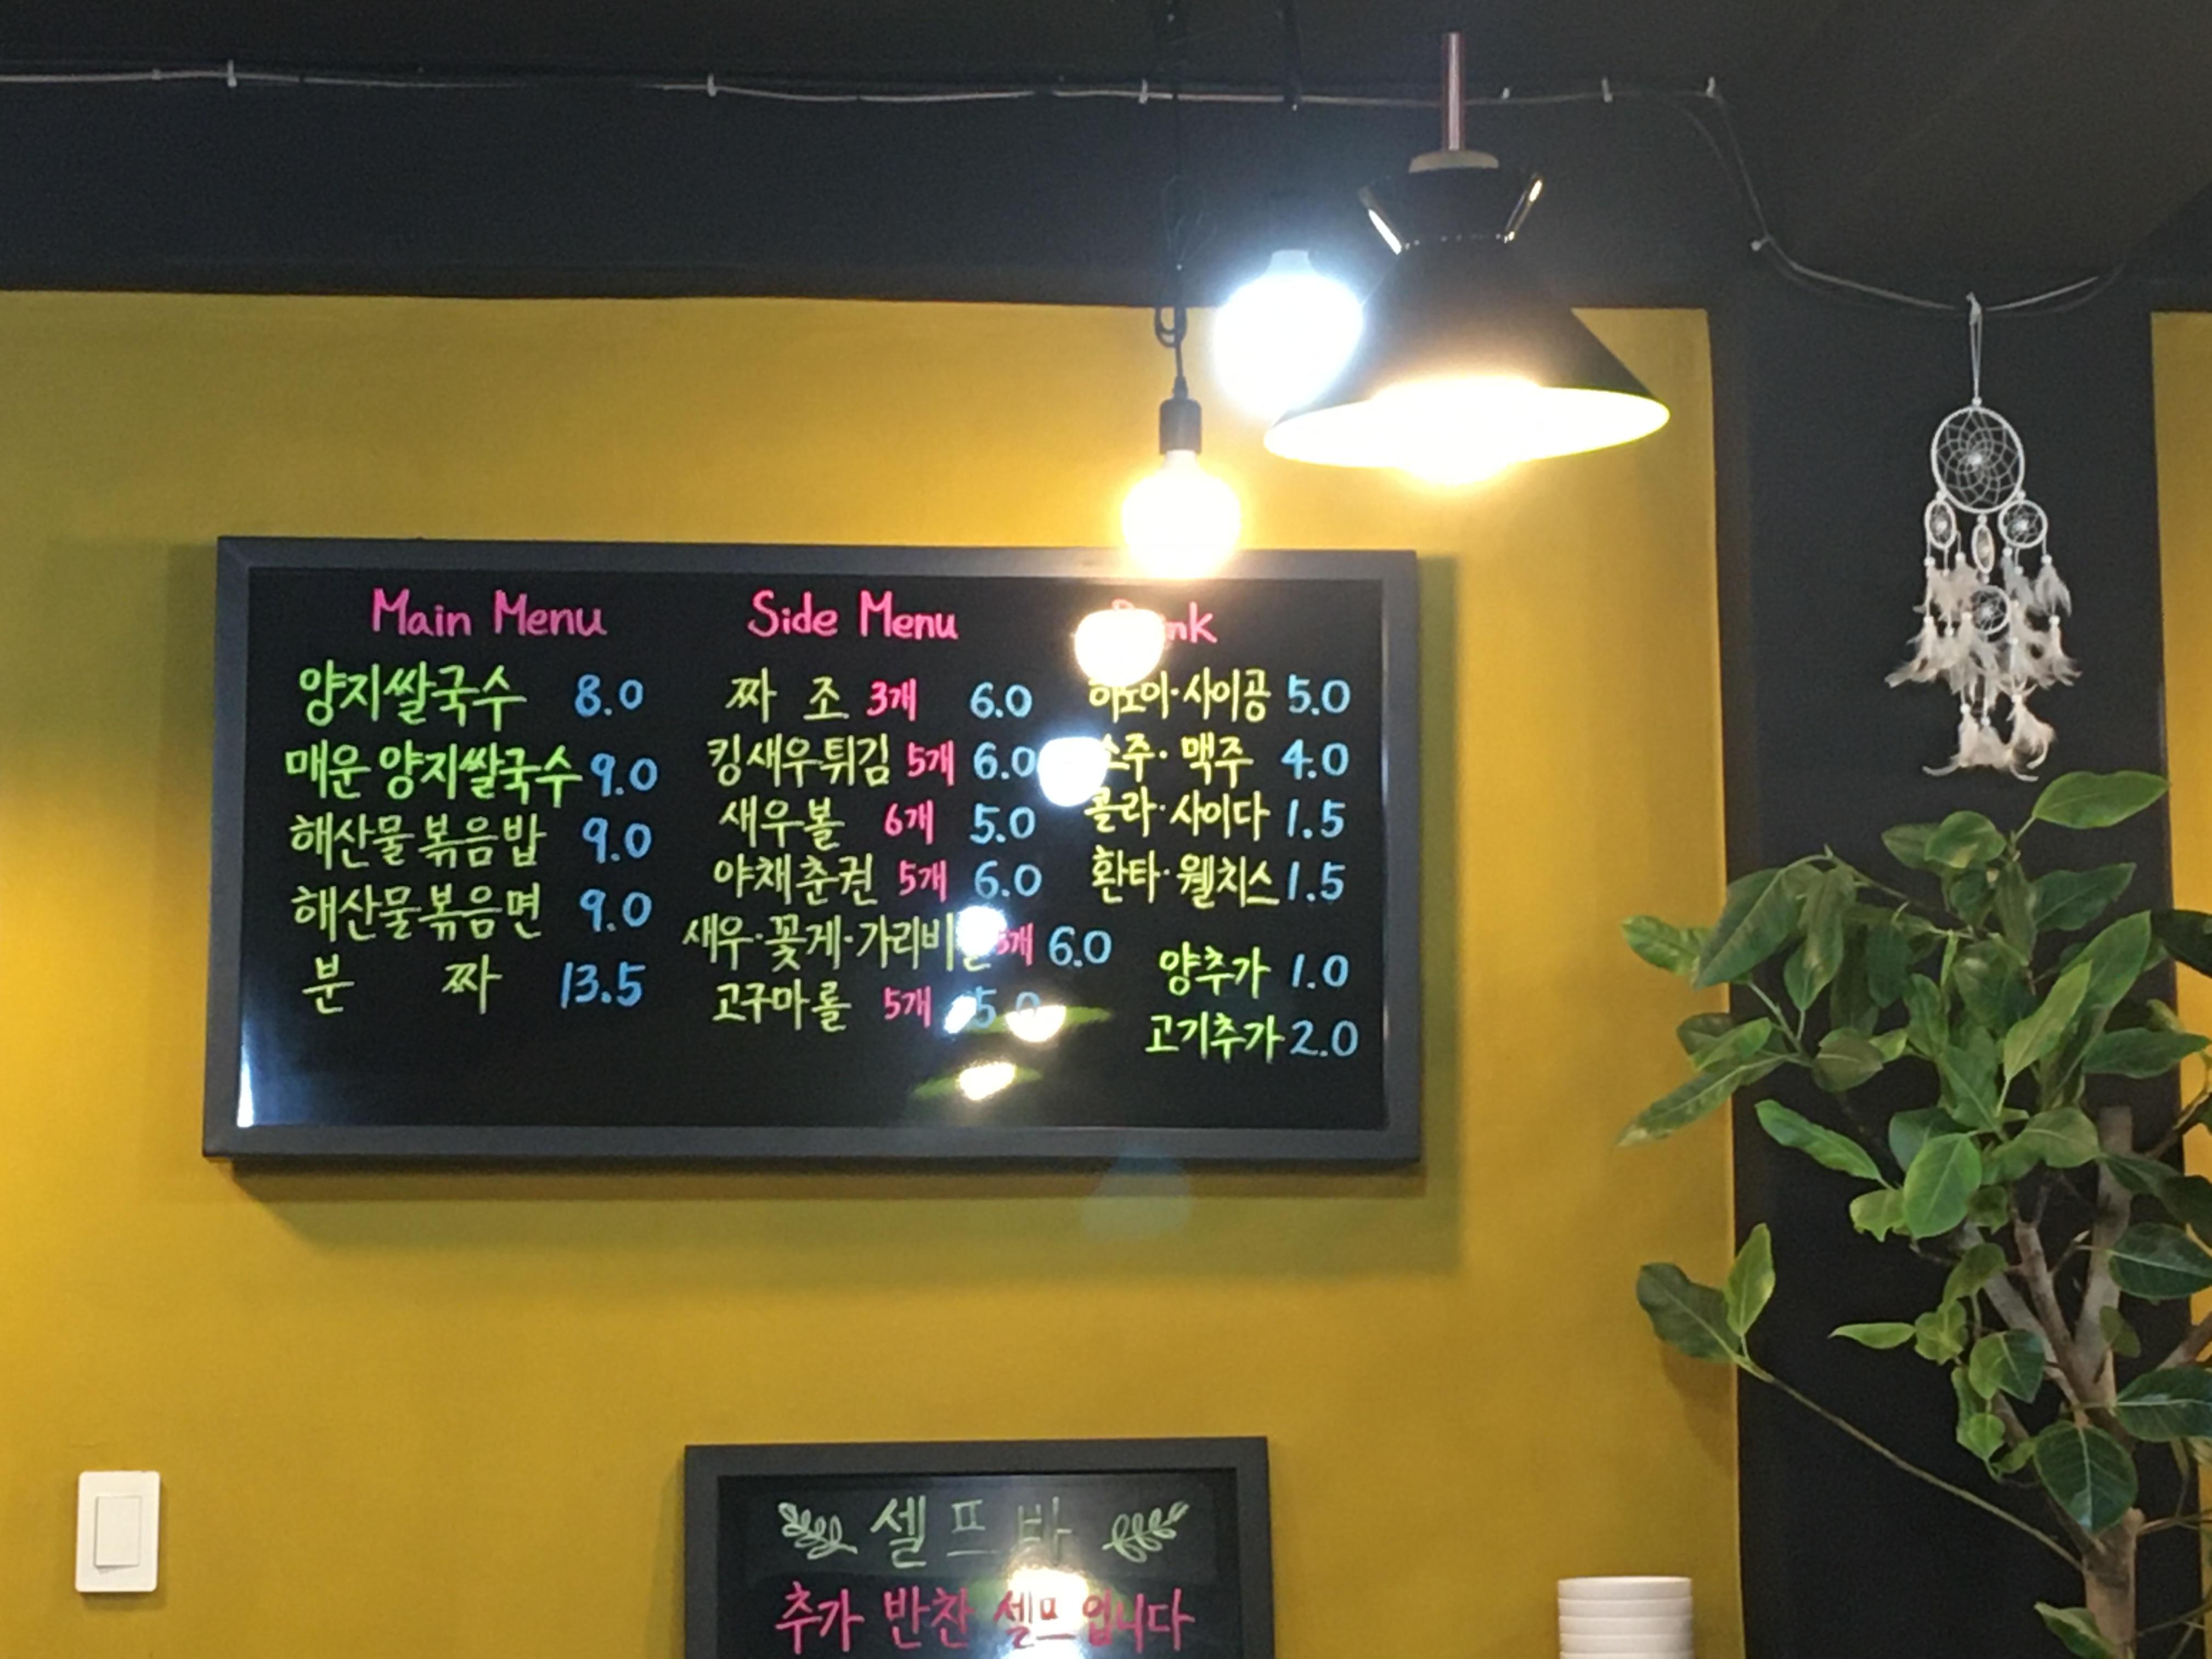 Main Menu
양지쌀국수 8.0
매운 양지쌀국수 9.0
해산물볶음밥 9.0
해산물볶음면 9.0
분 짜 13.5
Side Menu
짜 조 3개 6.0
킹새우튀김 5개 6.0
새우볼 6개 5.0
야채춘권 5개 6.0
새우·꽃게·가리비 6.0
고구마롤 5개 5.0
하노이·사이공 5.0
소주·맥주 4.0
콜라·사이다 1.5
환타·웰치스 1.5
양추가 1.0
고기추가 2.0
셀프바
추가 반찬 셀프입니다